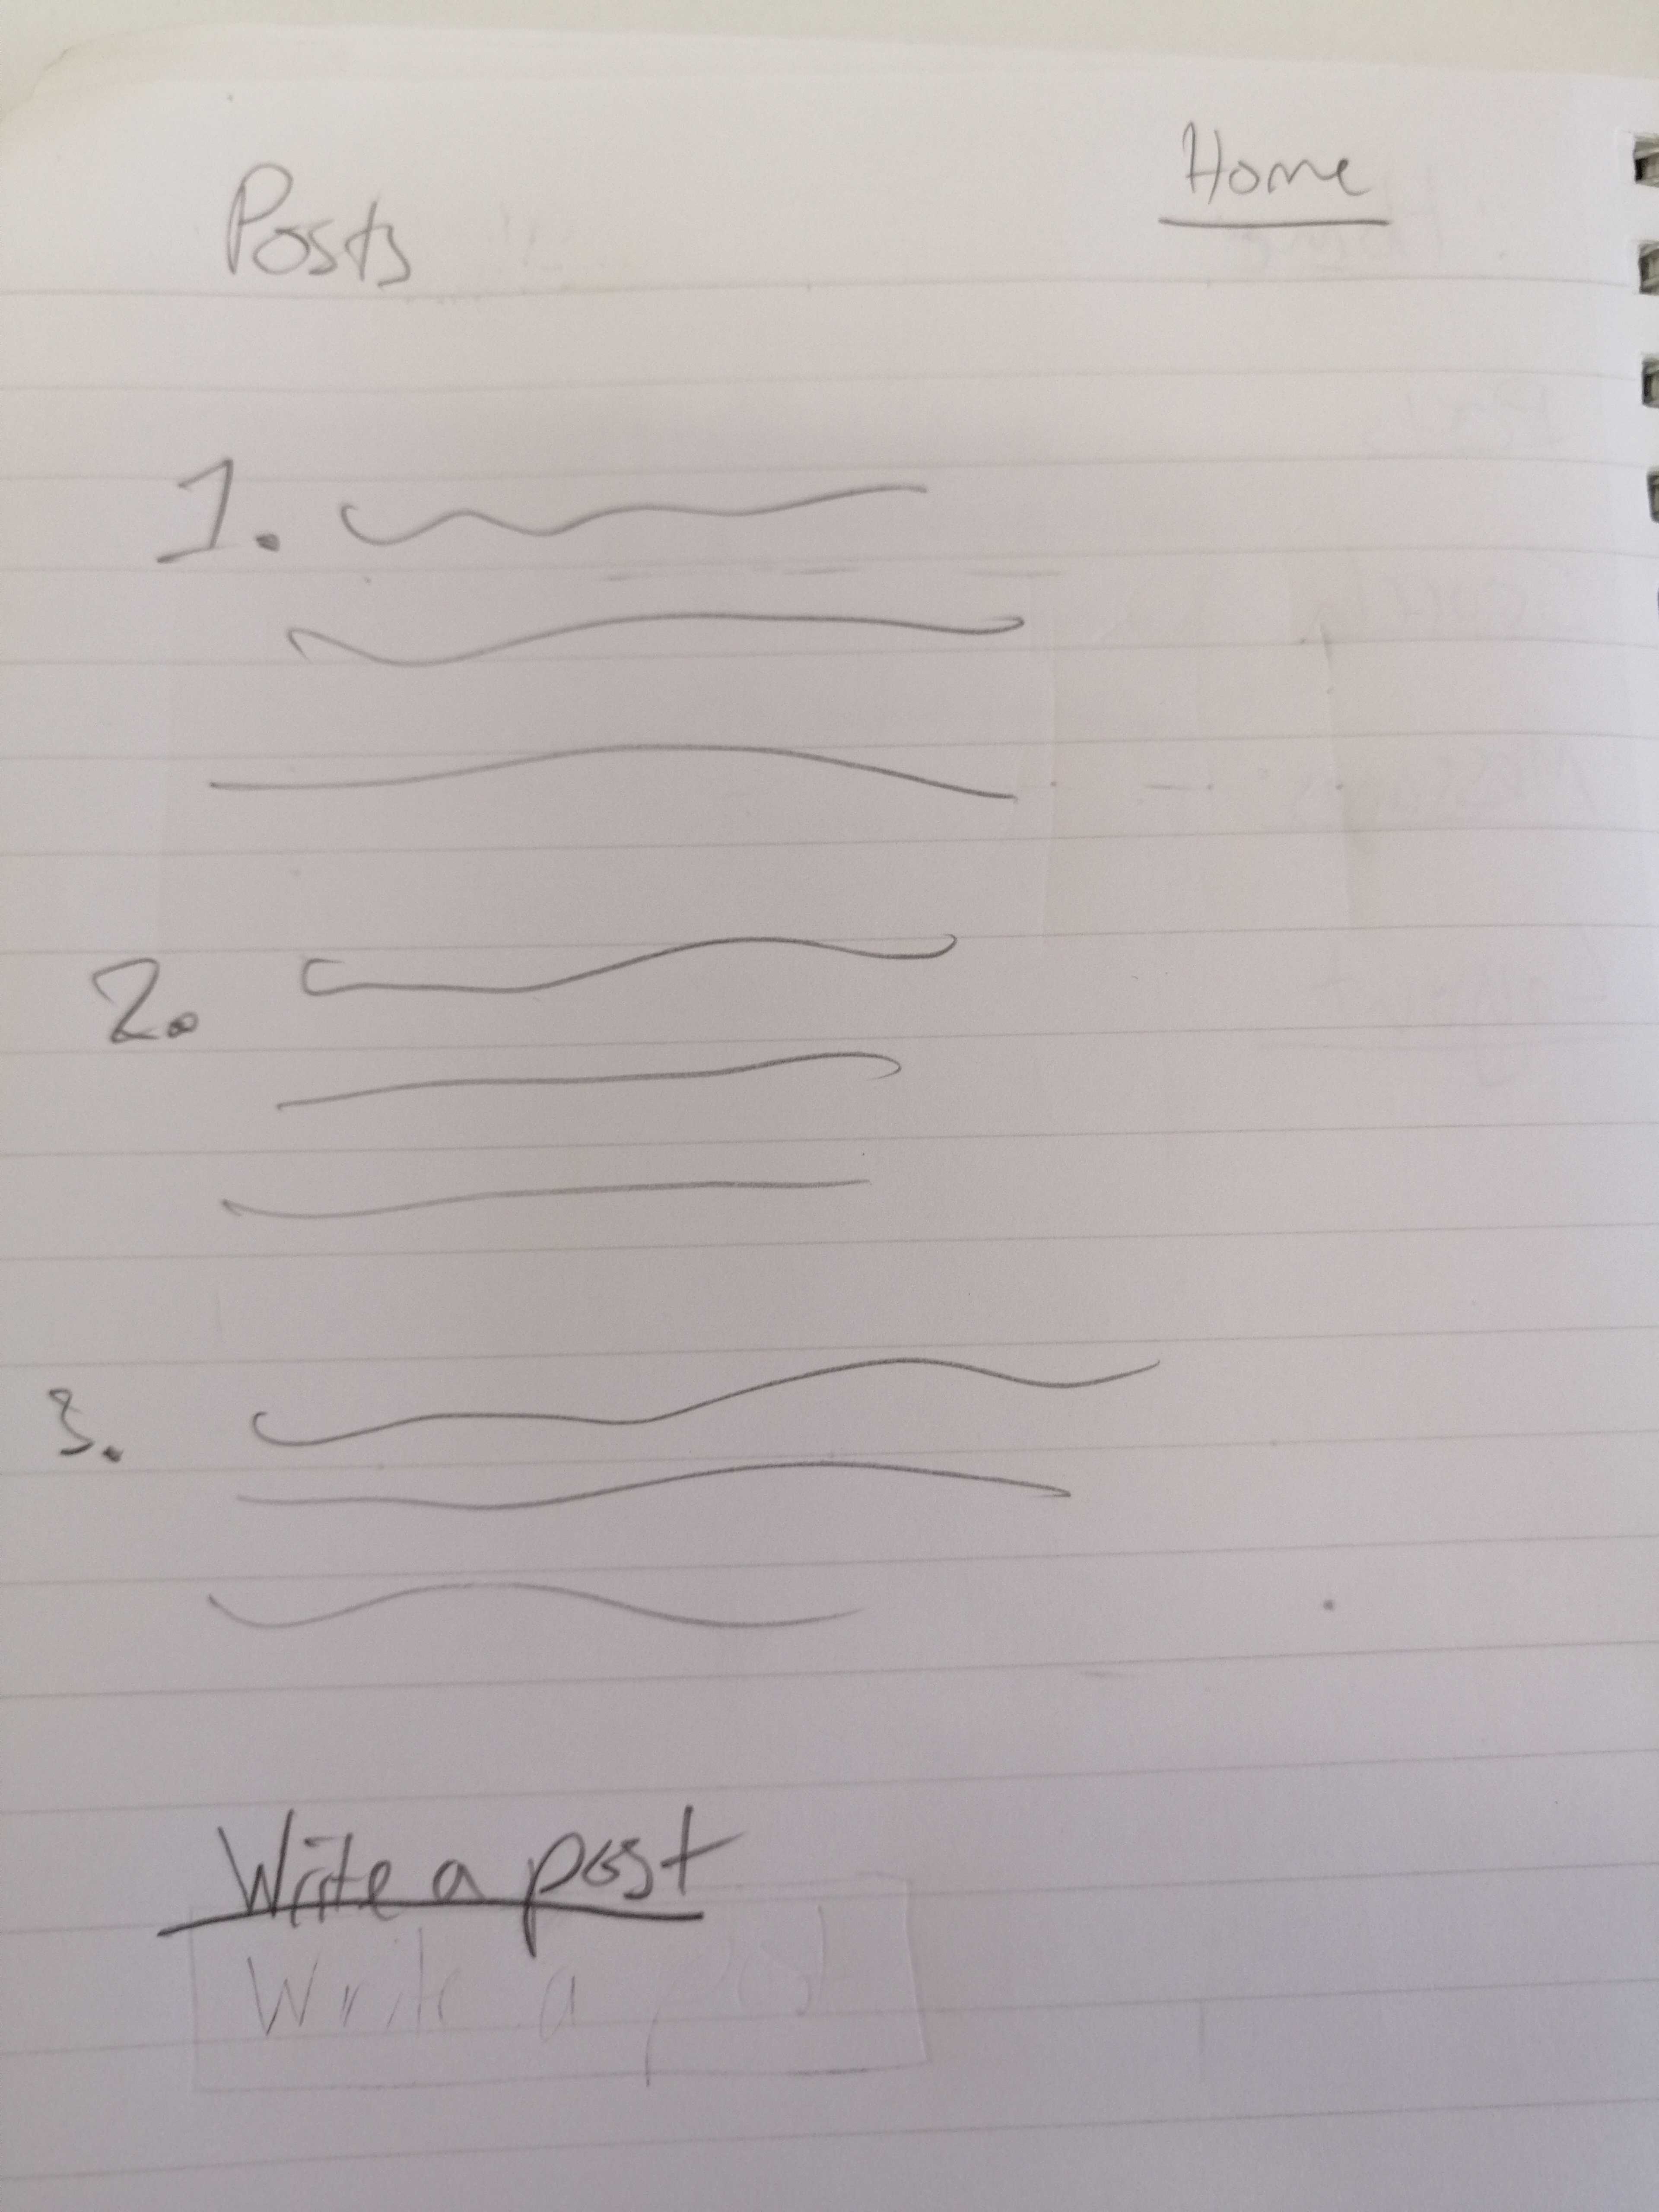 Posts
Home
1.
2.
3.
Write a post
Write a post